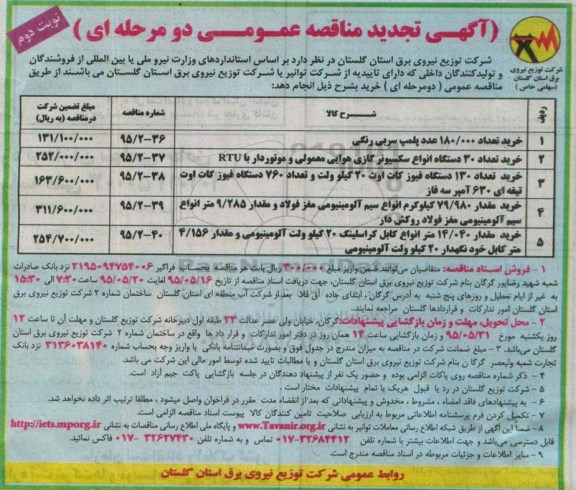 نوبت دوم
(آگهی تجدید مناقصه عمومی دو مرحله ای)
شرکت توزیع نیروی برق استان گلستان
(سهامی خاص)
شرکت توزیع نیروی برق استان گلستان در نظر دارد بر اساس استانداردهای وزارت نیرو ملی یا بین المللی از فروشندگان
و تولیدکنندگان داخلی که دارای تاییدیه از شرکت توانیر یا شرکت توزیع نیروی برق استان گلستان می باشند از طریق
مناقصه عمومی (دومرحله ای) خرید بشرح ذیل انجام دهد:
ردیف شرح کالا شماره مناقصه مبلغ تضمین شرکت درمناقصه (به ریال)
۱ خرید تعداد ۱۸۰/۰۰۰ عدد پلمپ سربی رنگی ۹۵/۲-۳۶ ۱۳۱/۱۰۰/۰۰۰
۲ خرید تعداد ۳۰ دستگاه انواع سکسیونر گازی هوایی معمولی و موتوردار با RTU ۹۵/۲-۳۷ ۲۵۲/۰۰۰/۰۰۰
۳ خرید تعداد ۱۳۰ دستگاه فیوز کات اوت ۲۰ کیلو ولت و تعداد ۷۶۰ دستگاه فیوز کات اوت ۹۵/۲-۳۸ ۱۶۳/۶۰۰/۰۰۰
تیغه ای ۶۳۰ آمپر سه فاز
۴ خرید مقدار ۷۹/۹۸۰ کیلوگرم انواع سیم آلومینیومی مغز فولاد و مقدار ۹/۲۸۵ متر انواع ۹۵/۲-۳۹ ۳۱۱/۶۰۰/۰۰۰
سیم آلومینیومی مغز فولاد روکش دار
۵ خرید مقدار ۱۴/۰۴۰ متر انواع کابل کراسلینک ۲۰ کیلو ولت آلومینیومی و مقدار ۴/۱۵۶ ۹۵/۲-۴۰ ۲۵۴/۷۰۰/۰۰۰
متر کابل خود نگهدار ۲۰ کیلو ولت آلومینیومی
۱ - فروش اسناد مناقصه: متقاضیان می توانند ضمن واریز مبلغ ۳۰۰/۰۰۰ ریال بابت هر مناقصه بحساب فراگیر ۲۱۹۵۰۹۴۷۵۴۰۰۶ نزد بانک صادرات
شعبه شهید رضاپور گرگان بنام شرکت توزیع نیروی برق استان گلستان، جهت دریافت اسناد مناقصه از تاریخ ۹۵/۰۵/۱۶ لغایت ۹۵/۰۵/۲۰ ساعت ۷:۳۰ الی ۱۵:۳۰
به غیر از ایام تعطیل و روزهای پنج شنبه به آدرس گرگان، ابتدای جاده آق قلا، بعد از شرکت آب منطقه ای استان گلستان ساختمان شماره ۲ شرکت توزیع نیروی برق
استان گلستان امور تدارکات و قراردادها گلستان مراجعه نمایند.
۲ - محل تحویل، مهلت و زمان بازگشایی پیشنهادات: گرگان، خیابان ولی عصر عدالت ۲۳ طبقه اول دبیرخانه شرکت توزیع گلستان و مهلت آن تا ساعت ۱۲
روز یکشنبه مورخ ۹۵/۰۵/۳۱ و زمان بازگشایی ساعت ۱۴ همان روز در دفتر امور تدارکات و قرار داد ها واقع در ساختمان شماره ۲ شرکت توزیع نیروی برق استان
گلستان می باشد. ۳ - مبلغ ضمانت شرکت در مناقصه به میزان مندرج در جدول فوق و بصورت ضمانتنامه بانکی یا واریز وجه بحساب شماره ۳۱۳۶۰۳۸۱۴۰ نزد بانک
تجارت شعبه ولیعصر گرگان بنام شرکت توزیع نیروی برق استان گلستان و یا مطالبات تایید شده توسط امور مالی این شرکت می باشد.
۴ - ذکر شماره مناقصه روی پاکات الزامی بوده و حضور یک نفر از پیشنهاد دهندگان در جلسه بازگشایی پاکت جیم آزاد است.
۵ - شرکت توزیع گلستان در رد یا قبول هریک یا تمام پیشنهادات مختار است.
۶ - به پیشنهادهای فاقد امضاء، مشروط، مخدوش و پیشنهاداتی که بعد از انقضاء مدت مقرر در فراخوان واصل میشود، مطلقا ترتیب اثر داده نخواهد شد.
۷ - تکمیل کردن فرم پرسشنامه اطلاعاتی مربوط به ارزیابی صلاحیت تامین کنندگان کالا پیوست اسناد مناقصه الزامی است.
۸ - ضمنا این آگهی از طریق شبکه اطلاع رسانی معاملات توانیر به نشانی http://www.Tavanir.org.ir و پایگاه ملی اطلاع رسانی مناقصات به نشانی http://iets.mporg.ir
قابل دسترسی می باشد و جهت اطلاعات بیشتر با شماره تلفن ۰۱۷-۳۲۶۸۴۴۱۲ تماس و به شماره تلفن ۰۱۷-۳۲۶۲۷۴۳۰ فاکس نمائید.
۹ - سایر اطلاعات و جزئیات مربوطه در اسناد مناقصه مندرج است.
روابط عمومی شرکت توزیع نیروی برق استان گلستان